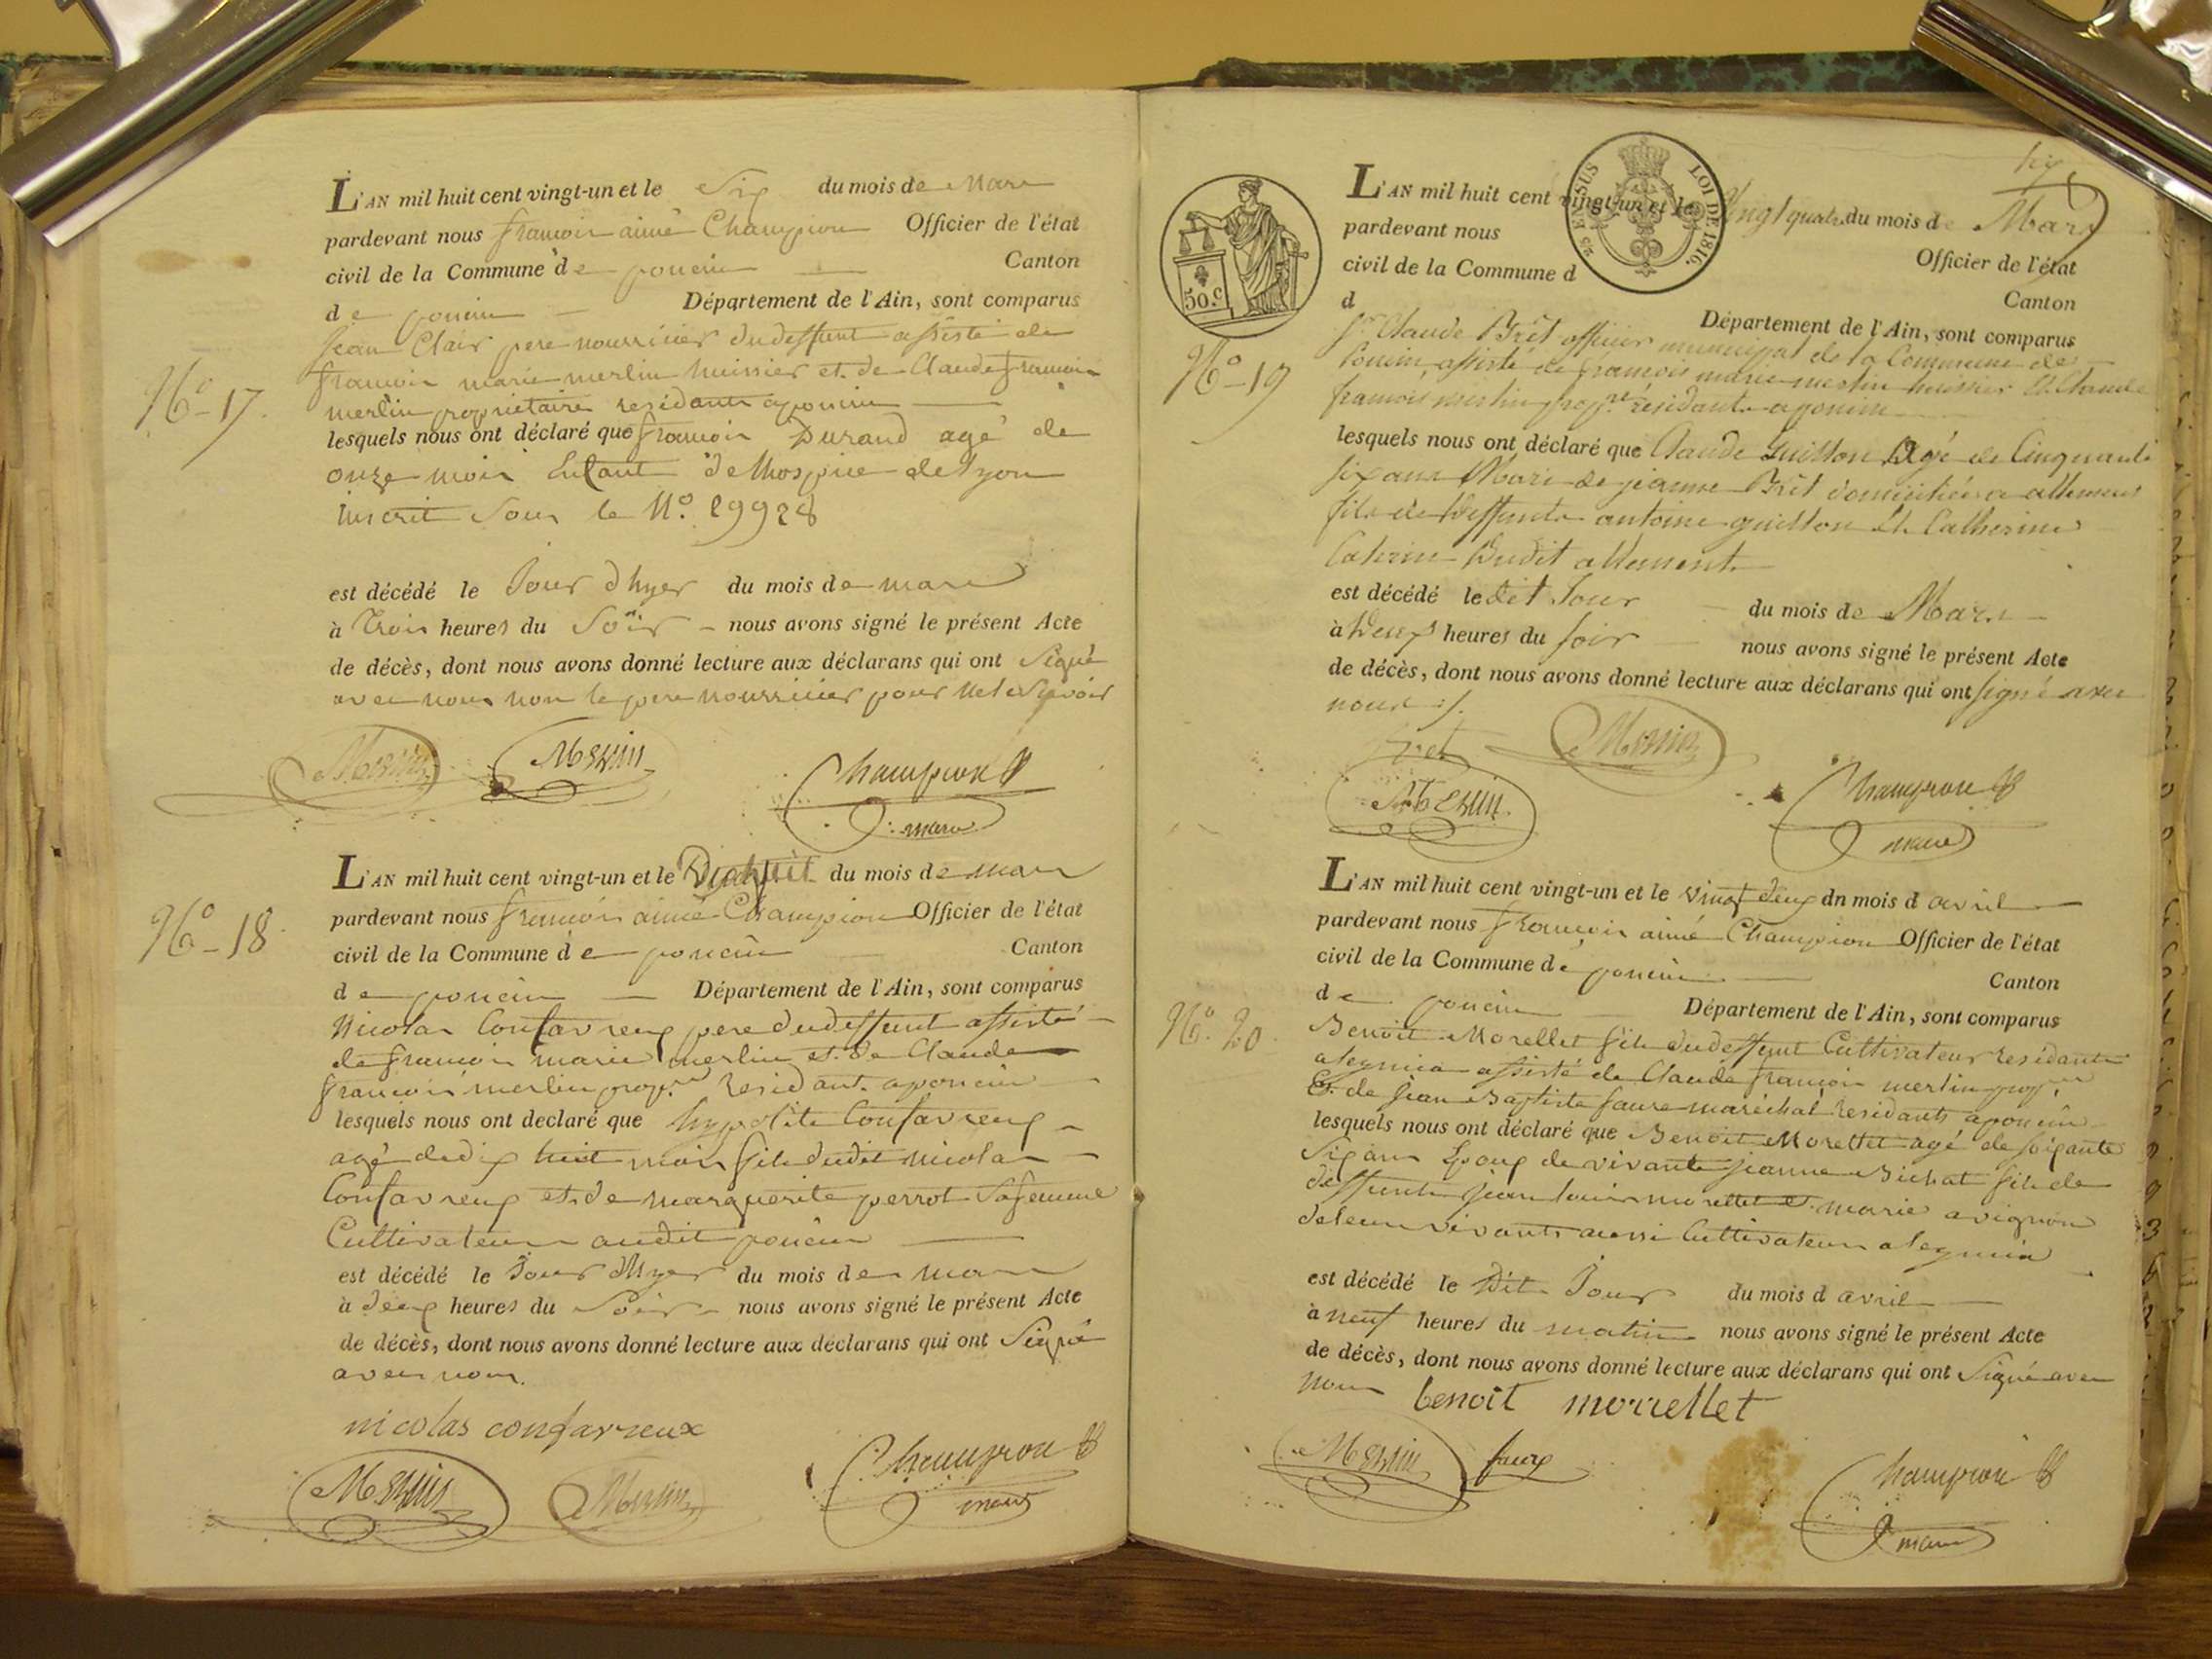 N.º 17.
L'AN mil huit cent vingt-un et le Six du mois de Mars
pardevant nous françois aimé Champion Officier de l'état
civil de la Commune de poncin Canton
de poncin Département de l'Ain, sont comparus
Jean Clair pere nourricier dudeffunt assisté de
françois marie merlin huissier et de Claude françois
merlin propriétaire residants a poncin
lesquels nous ont déclaré que françois Durand agé de
onze mois Enfant de lhospice de Lyon
inscrit Sous le N.º 29928
est décédé le Jour dhyer du mois de mars
à trois heures du Soir nous avons signé le présent Acte
de décès, dont nous avons donné lecture aux déclarans qui ont Signé
avec nous non le pere nourricier pour ne le Savoir
Merlin Merlin Champion
maire
N.º 18.
L'AN mil huit cent vingt-un et le Dixhuit du mois de mars
pardevant nous françois aimé Champion Officier de l'état
civil de la Commune de poncin Canton
de poncin Département de l'Ain, sont comparus
Nicolas Confavreux pere dudeffunt assisté
de françois marie merlin et de Claude
françois merlin prop.re residant a poncin
lesquels nous ont declaré que hypolite Confavreux
agé de dix huit mois fils dudit nicolas
Confavreux et de marguerite perrot Sa femme
Cultivateurs audit poncin
est décédé le Jour dhyer du mois de mars
à deux heures du Soir nous avons signé le présent Acte
de décès, dont nous avons donné lecture aux déclarans qui ont Signé
avec nous.
nicolas confavreux
Merlin Merlin Champion
maire
50.C
EN SUS LOI DE 1816.
N.º 19
L'AN mil huit cent vingt-un et le Vingt quatre du mois de Mars
pardevant nous Officier de l'état
civil de la Commune d Canton
d Département de l'Ain, sont comparus
S.r Claude Brêt officier municipal de la Commune de
Poncin assisté de françois marie merlin huissier et Claude
francois merlin prop.re résidants a poncin
lesquels nous ont déclaré que Claude Guillon Agé de Cinquante
six ans Mari de jeanne Brêt domiciliés a allement
fils de deffunts antoine guillon Et Catherine
dudit allement
est décédé le dit Jour du mois de Mars
à Deux heures du soir nous avons signé le présent Acte
de décès, dont nous avons donné lecture aux déclarans qui ont signé avec
nous ./.
Bret Merlin
Merlin Champion
maire
N.º 20.
L'AN mil huit cent vingt-un et le vingt deux dn mois d avril
pardevant nous françois aimé Champion Officier de l'état
civil de la Commune de poncin Canton
de poncin Département de l'Ain, sont comparus
Benoit Morellet fils dudeffunt Cultivateur residant
a leymia assisté de Claude françois merlin prop.re
Et de Jean Baptiste faure maréchal residants a poncin
lesquels nous ont déclaré que Benoit Morellet agé de soixante
Six ans Epoux de vivante jeanne Bichat fils de
deffunts Jean louis morellet et marie avignon
de leur vivants aussi Cultivateurs a leymia
est décédé le Dit Jour du mois d avril
à neuf heures du matin nous avons signé le présent Acte
de décès, dont nous avons donné lecture aux déclarans qui ont Signé avec
nous benoit morrellet
Merlin faure Champion
maire